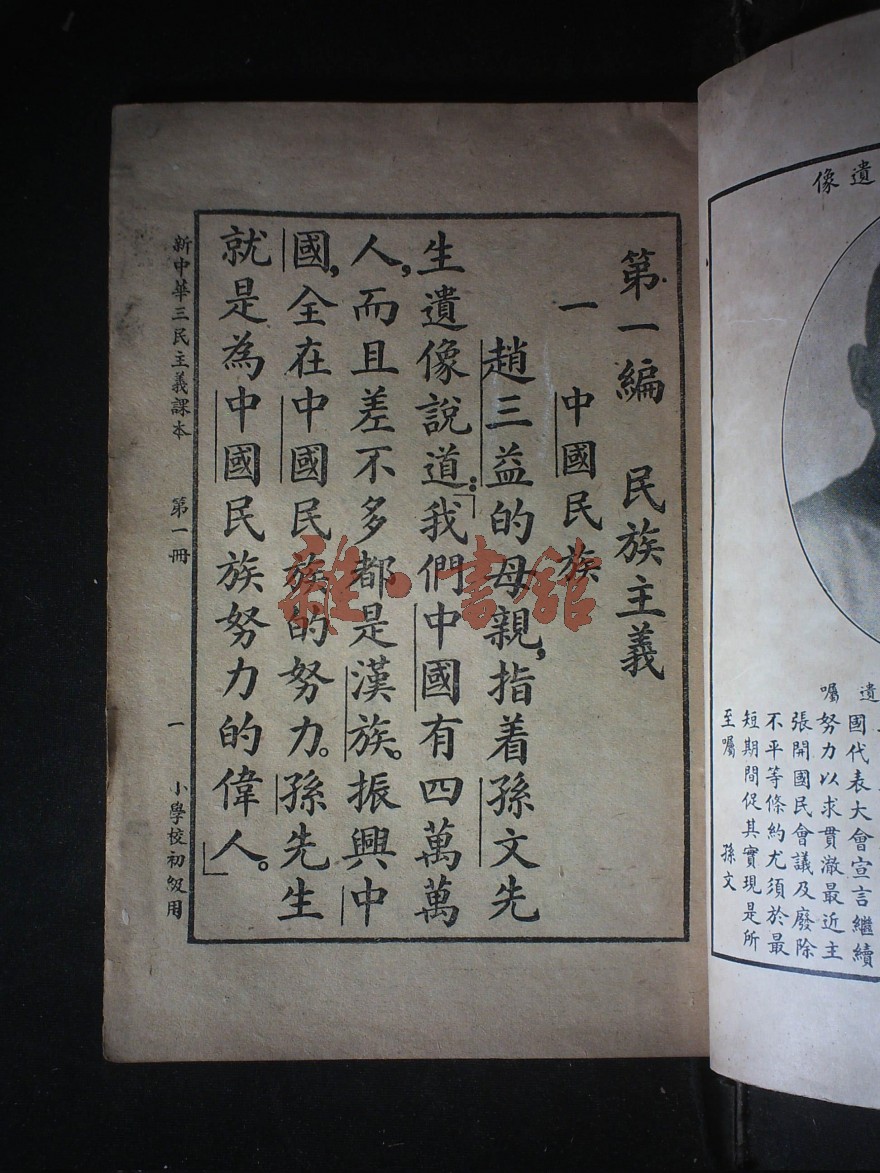 遺像
遺囑
國代表大會宣言繼續
努力以求貫澈最近主
張開國民會議及廢除
不平等條約尤須於最
短期間促其實現是所
至囑　孫文
第一編　民族主義
一　中國民族
趙三益的母親,指着孫文先
生遺像說道:「我們中國有四萬萬
人,而且差不多都是漢族。振興中
國,全在中國民族的努力。孫先生
就是為中國民族努力的偉人。」
新中華三民主義課本　第一冊　一　小學校初級用
雜·書館